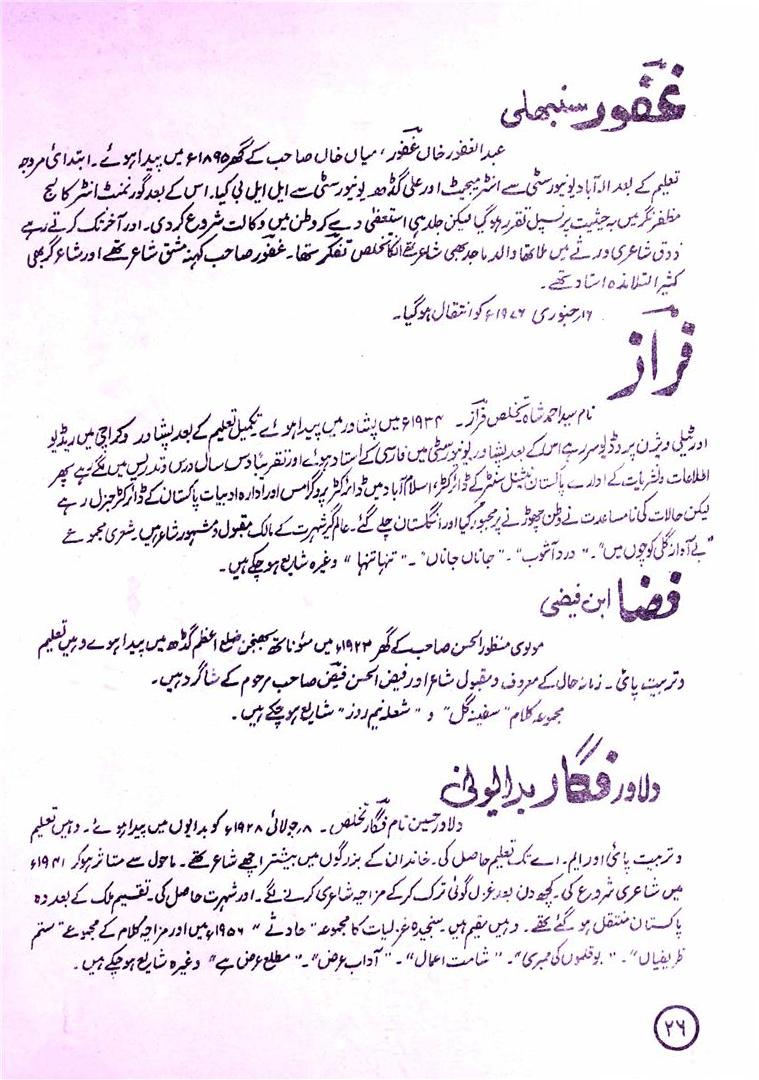 غفور سنبھلی
عبدالغفور خاں غفور، میاں خاں صاحب کے گھر ۱۸۹۵ء میں پیدا ہوئے۔ ابتدائی مروجہ
تعلیم کے بعد الہ آباد یونیورسٹی سے انٹرمیجیٹ اور علی گڈھ یونیورسٹی سے ایل ایل بی کیا۔ اس کے بعد گورنمنٹ انٹر کالج
مظفر نگر میں بہ حیثیت پرنسپل تقرر ہوگیا لیکن جلد ہی استعفیٰ دے کر وطن میں وکالت شروع کردی۔ اور آخر تک کرتے رہے
ذوق شاعری ورثے میں ملا تھا والد ماجد بھی شاعر تھے انکا تخلص تفکر تھا۔ غفور صاحب کہنہ مشق شاعر تھے اور شاعر گر بھی
کثیر التلامذہ استاد تھے۔
۱۶ر جنوری ۱۹۷۶ء کو انتقال ہوگیا۔
فراز
نام سید احمد شاہ تخلص فراز۔ ۱۹۳۴ء میں پشاور میں پیدا ہوئے تکمیل تعلیم کے بعد پشاور و کراچی میں ریڈیو
اور ٹیلی ویژن پروڈیوسر رہے اس کے بعد پشاور یونیورسٹی میں فارسی کے استاد ہوئے اور تقریباً دس سال درس و تدریس میں لگے رہے پھر
اطلاعات و نشریات کے ادارے پاکستان نیشنل سنٹر کے ڈائرکٹر، اسلام آباد میں ڈائرکٹر پروگرامس اور ادارہ ادبیات پاکستان کے ڈائرکٹر جنرل رہے
لیکن حالات کی نامساعدت نے وطن چھوڑنے پر مجبور کیا اور انگلستان چلے گئے۔ عالمگیر شہرت کے مالک مقبول و مشہور شاعر ہیں۔ شعری مجموعے
"بے آواز گلی کوچوں میں"۔ "درد آشوب"۔ "جاناں جاناں"۔ "تنہا تنہا" وغیرہ شایع ہوچکے ہیں۔
فضا ابن فیضی
مولوی منظور الحسن صاحب کے گھر ۱۹۲۳ء میں مئوناتھ بھنجن ضلع اعظم گڈھ میں پیدا ہوے وہیں تعلیم
و تربیت پائی۔ زمانۂ حال کے معروف و مقبول شاعر اور فیض الحسن فیض صاحب مرحوم کے شاگرد ہیں۔
مجموعہ کلام "سفینۂ گل" و "شعلہ نیم روز" شایع ہوچکے ہیں۔
دلاور فگار بدایونی
دلاور حسین نام فگار تخلص۔ ۸ر جولائی ۱۹۲۸ء کو بدایوں میں پیدا ہوئے۔ وہیں تعلیم
و تربیت پائی اور ایم۔ اے تک تعلیم حاصل کی۔ خاندان کے بزرگوں میں بیشتر اچھے شاعر تھے۔ ماحول سے متاثر ہوکر ۱۹۴۱ء
میں شاعری شروع کی۔ کچھ دن بعد غزل گوئی ترک کرکے مزاحیہ شاعری کرنے لگے۔ اور شہرت حاصل کی۔ تقسیم ملک کے بعد وہ
پاکستان منتقل ہو گئے تھے۔ وہیں مقیم ہیں۔ سنجیدہ غزلیات کا مجموعہ "حادثے" ۱۹۵۶ء میں اور مزاحیہ کلام کے مجموعے "ستم
ظریفیاں"۔ " کی ممبری"۔ "شامت اعمال"۔ "آداب عرض"۔ "مطلع عرض ہے" وغیرہ شایع ہوچکے ہیں۔
۲۶